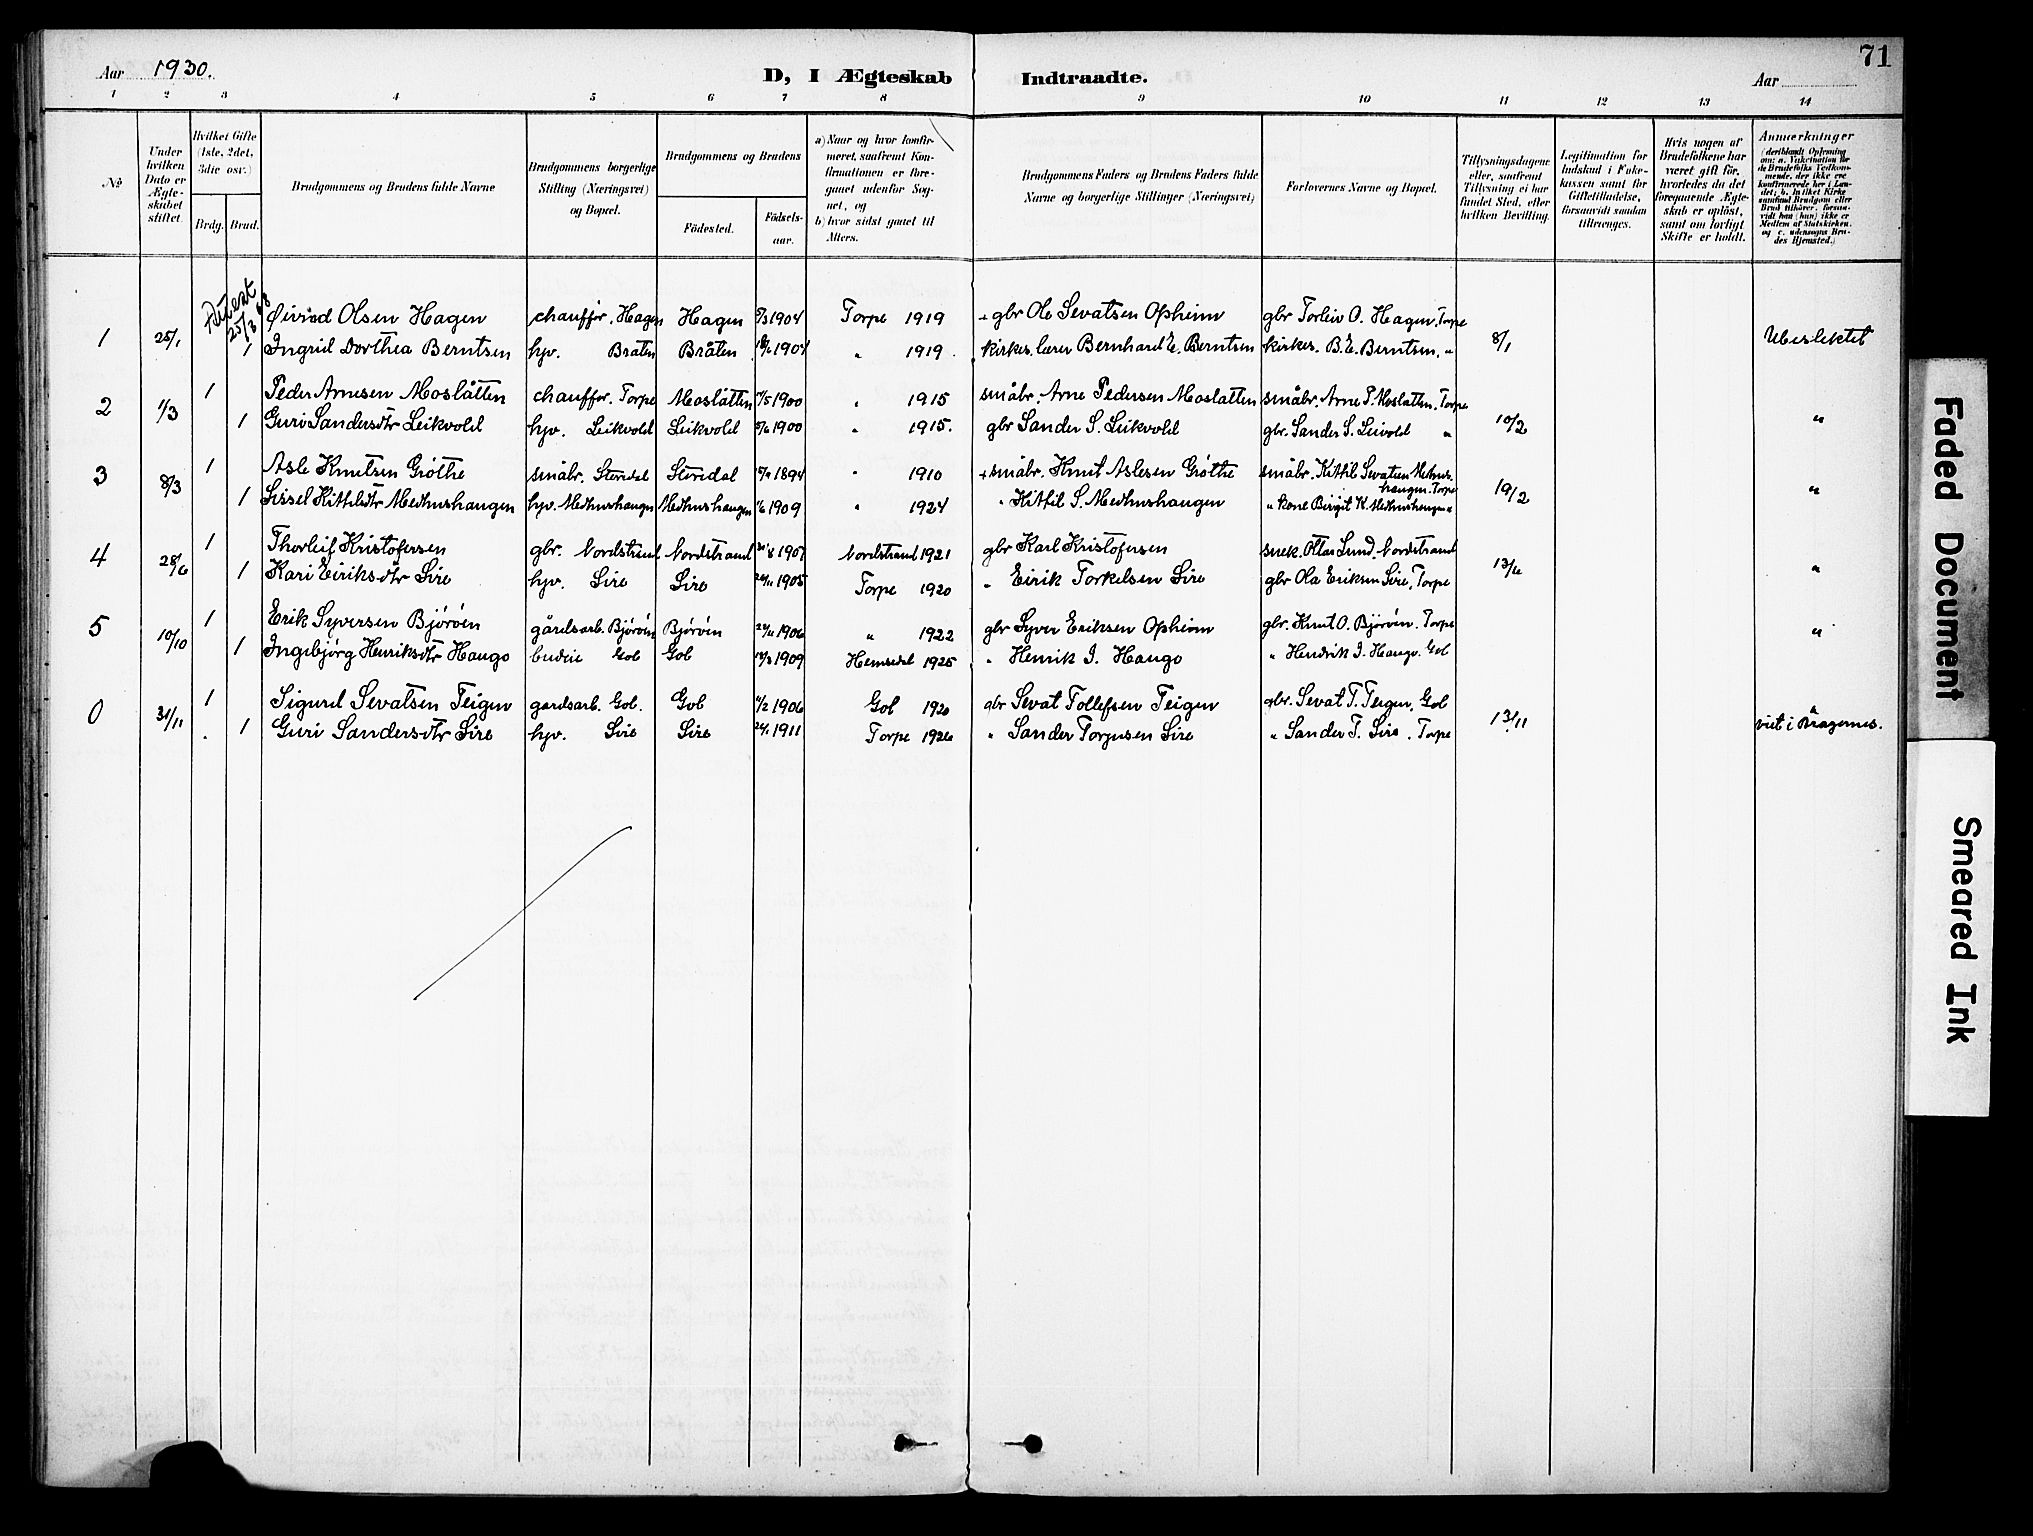 71
Aar 1930.
D, I Ægteskab Indtraadte.
Aar
1 2 3 4 5 6 7 8 9 10 11 12 13 14
No
Under hvilken Dato er Ægteskabet stiftet.
Hvilket Gifte (1ste, 2det, 3die osv.)
Brdg. Brud.
Brudgommens og Brudens fulde Navne
Brudgommens borgerlige Stilling (Næringsvei) og Bopæl.
Brudgommens og Brudens
Fødested.
Fødselsaar.
a) Naar og hvor konfirmeret, saafremt Konfirmationen er foregaaet udenfor Sognet, og
b) hvor sidst gaaet til Alters.
Brudgommens Faders og Brudens Faders fulde Navne og borgerlige Stillinger (Næringsvei)
Forlovernes Navne og Bopæl.
Tillysningsdagene eller, saafremt Tillysning ei har fundet Sted, efter hvilken Bevilling.
Legitimation for Indskud i Enkekassen samt for Giftetilladelse, forsaavidt saadan tiltrænges.
Hvis nogen af Brudefolkene har været gift før, hvorledes da det foregaaende Ægteskab er opløst, samt om lovligt Skifte er holdt.
Anmærkninger
(deriblandt Oplysning om: a. Vakcination for de Brudefolks Vedkommende, der ikke ere konfirmerede her i Landet; b. hvilket Kirkesamfund Brudgom eller Brud tilhører, forsaavidt han (hun) ikke er Medlem af Statskirken, og c. udensogns Brudes Hjemsted.)
25/3
1 25/1 Øivind Olsen Hagen chauffør. Hagen Hagen 1904 Torpe 1919 + gbr Ole Sevatsen Opheim gbr Torleiv O. Hagen, Torpe 8/1 Ubeslektet
1 Ingrid Dorthea Berntsen hjv. Bråten Bråten 1904 " 1919. kirkes. lærer Bernhard E. Berntsen kirkes. B.E. Berntsen, "
2 1/3 1 Peder Arnesen Moslåtten chauffør. Torpe Moslåtten 1900 " 1915 småbr. Arne Pedersen Moslåtten småbr. Arne P. Moslåtten, Torpe 10/2 "
1 Guri Sandersdtr Leikvold hjv. Leikvold Leikvold 1900 " 1915. gbr Sander S. Leikvold gbr. Sander S. Leivold "
3 8/3 1 Asle Knutsen Grøthe småbr. Storedal 1894 " 1910 + småbr. Knut Aslesen Grøthe småbr. Kittil Sevatsen Medhushaugen. Torpe 19/2 "
1 Sissel Kittilsdtr Medhushaugen hjv. Medhushaugen Medhushaugen 1909 " 1924 " Kittil S. Medhushaugen " kone Birgit K. Medhushaugen "
4 28/6 1 Thorleif Kristofersen gbr. Nordstrand Nordstrand Nordstrand 1921 gbr Karl Kristofersen Ottar Lund. Nordstrand 13/6 "
1 Kari Eiriksdtr Sire hjv. Sire Sire 1905 Torpe 1920 " Eirik Torkelsen Sire gbr Ola Eriksen Sire, Torpe
5 10/10 1 Erik Syversen Bjørøen gårdsarb. Bjørøen Bjørøen 1906 " 1922 gbr Syver Eriksen Opheim gbr. Knut O. Bjørøen. Torpe "
1 Ingebjørg Henriksdtr Haugo budeie Gol Gol 1909 Hemsedal 1925 " Henrik I. Haugo " Hendrik I. Haugo. Gol
0 1 Sigurd Sevatsen Teigen gardsarb. Gol. Gol 1906 Gol 1920 gbr Sevat Tollefsen Teigen gbr. Sevat T. Teigen, Gol 13/11 " viet i Bragernes.
1 Guri Sandersdtr Sire hjv. Sire Sire 1911 Torpe 1926 " Sander Torgusen Sire " Sander T. Sire. Torpe
Faded Document
Smeared Ink